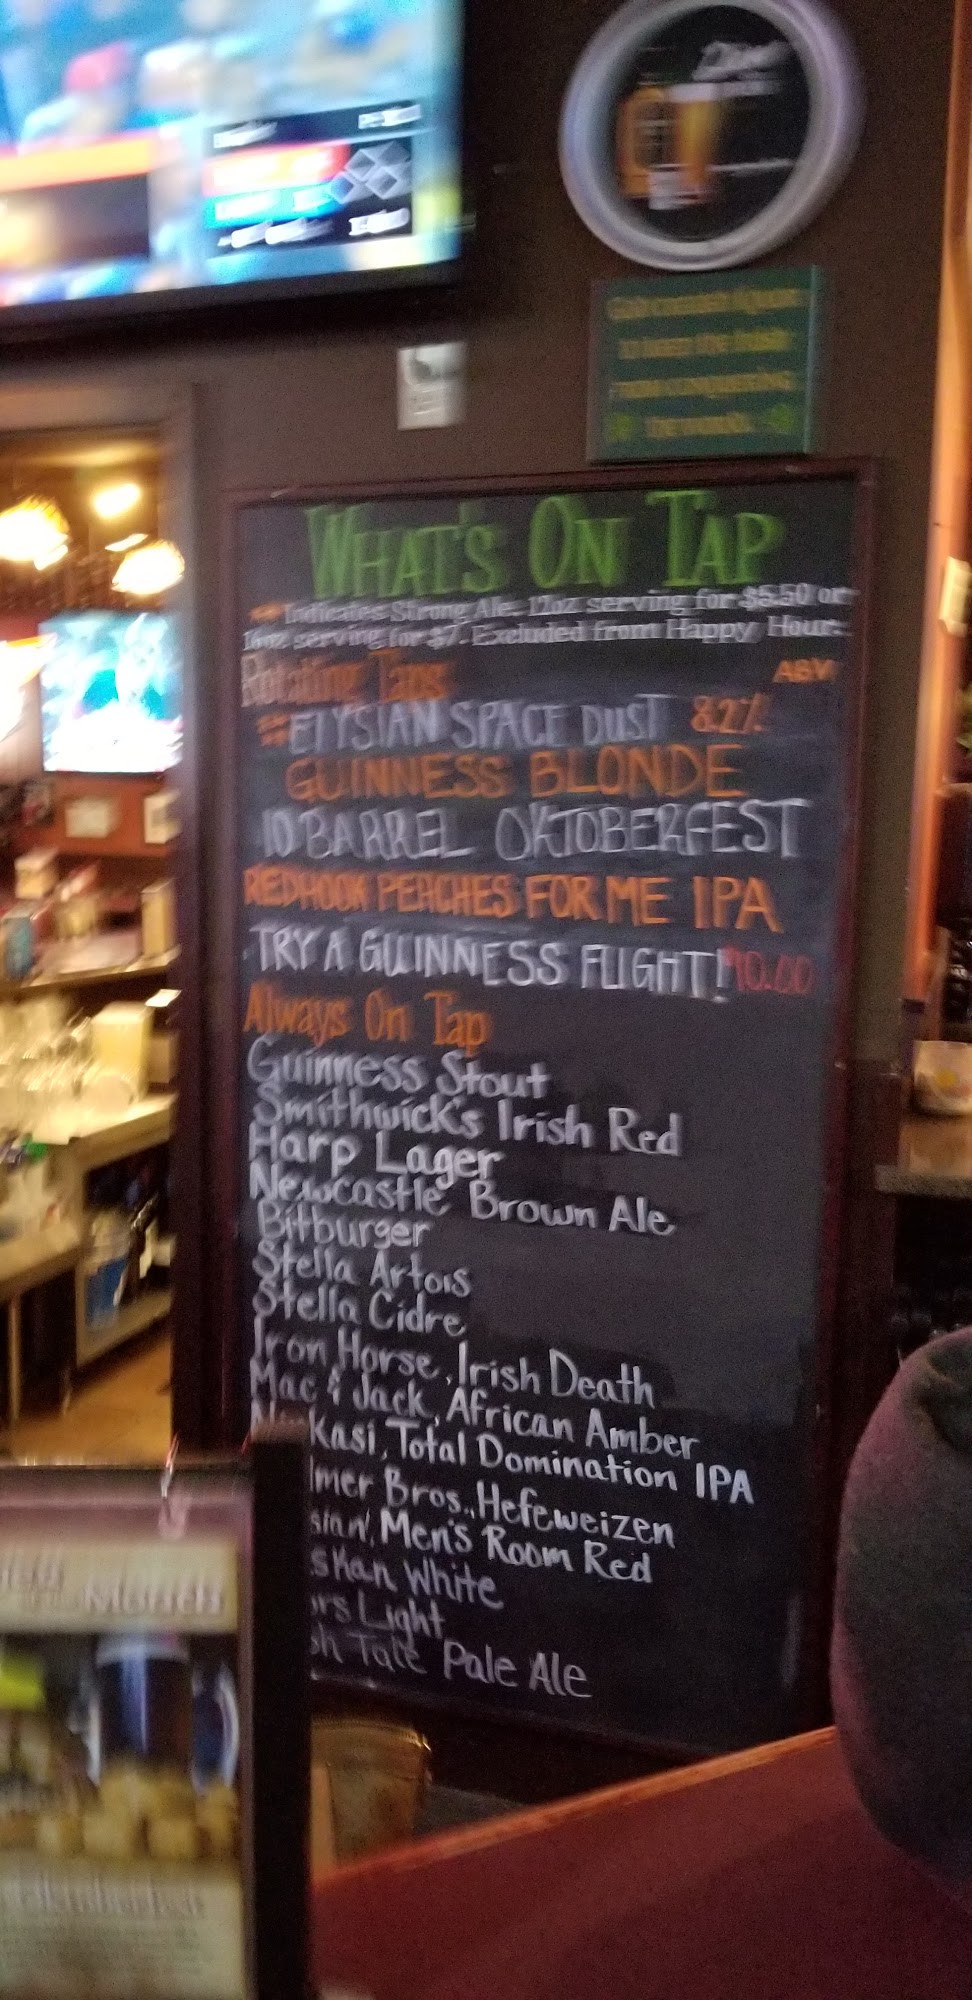 God created liquor
to keep the Irish
from conquering
the world.
WHAT'S ON TAP
** Indicates Strong Ale. 12oz serving for $5.50 or
16oz serving for $7. Excluded from Happy Hour.
Rotating Taps ABV
** ELYSIAN SPACE DUST 8.2%
GUINNESS BLONDE
10 BARREL OKTOBERFEST
REDHOOK PEACHES FOR ME IPA
TRY A GUINNESS FLIGHT! 10.00
Always On Tap
Guinness Stout
Smithwick's Irish Red
Harp Lager
Newcastle Brown Ale
Bitburger
Stella Artois
Stella Cidre
Iron Horse, Irish Death
Mac & Jack, African Amber
kasi, Total Domination IPA
mer Bros., Hefeweizen
sian, Men's Room Red
skan White
rs Light
sh Tale Pale Ale